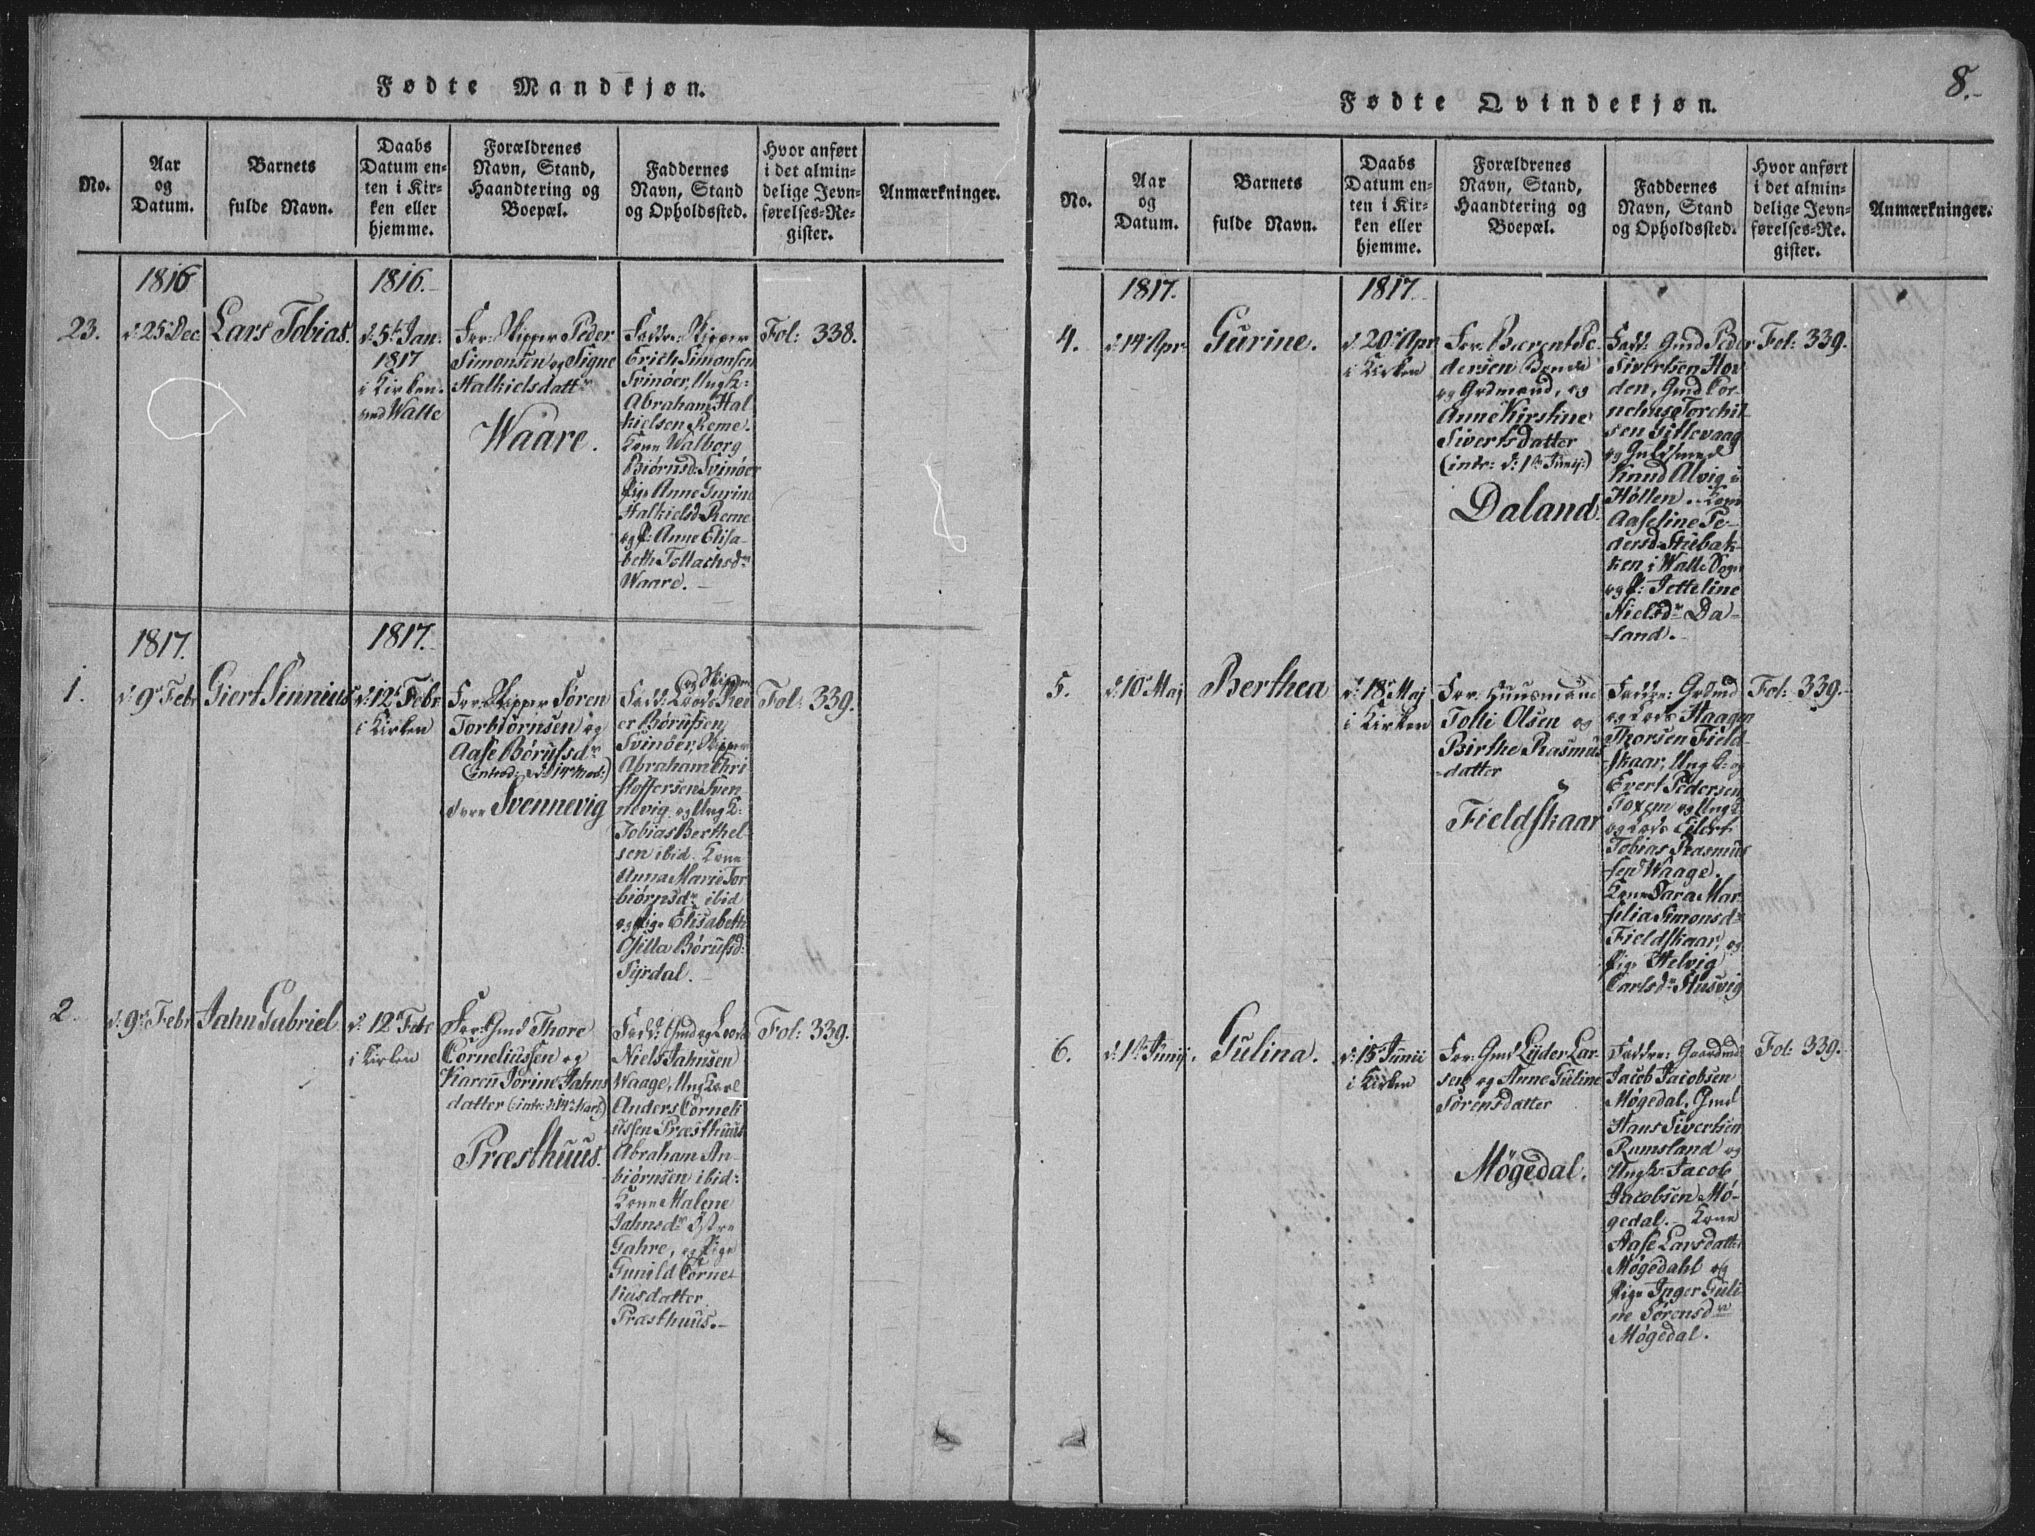 Fødte Mandkjøn.
No.
Aar
og
Datum.
Barnets
fulde Navn.
Daabs
Datum en-
ten i Kir-
ken eller
hjemme.
Forældrenes
Navn, Stand,
Haandtering og
Boepæl.
Faddernes
Navn, Stand
og Opholdssted.
Hvor anført
i det almin-
delige Jevn-
førelses-Re-
gister.
Anmærkninger.
1816
23.
d: 25 Dec
Lars Tobias.
1816.
d: 5t Jan:
1817
i Kirken
ved Walle
For: Skipper Peder
Simonsen og Signe
Halkielsdattr
Waare.
Faddr: Skipper
Erich Simonsen
Svinøer, Ungk:
Abraham Hal
kielsen Reme.
Kone Walborg
Biørnsd: Svinøer
Pige Anne Gurine
Halkielsd: Reme
og P: Anne Elisa-
beth Tollachsdr
Waare.
Fol: 338.
1817.
1.
d: 9r Febr
Giert Sinnius
1817.
d: 12t Febr
i Kirken
For: Skipper Søren
Torbiørnsen og
Aase Børufsdr
Svennevig
Skipper
Fadd: Lods Rei
er Børufsen
Svinøer, Skipper
Abraham Chri
stoffersen Sven
nevig og Ung K:
Tobias Berthel-
sen ibid. Kone
Anna Marie Tor
biørnsdr ibid
og Pige Elisabeth
Børufsd:
Syrdal.
Fol: 339.
2
d: 9r Febr
Jahn Gabriel
d: 12 Febr
i Kirken
For: Gmd Thore
Corneliussen og
Karen Jorine Jahns
datter (intr: d: 14r Mart:)
Præsthuus.
Fadd: Gmd og Lods
Niels Jahnsen
Waage, Ung Karl
Anders Corneli
ussen Præsthuus
Abraham An-
biørnsen ibid:
Kone Malene
Jahnsdr Østre
Gahre, og Pige
Gunild Corne
liusdatter
Præsthuus.
Fol: 339.
8.
Fødte Qvindekjøn.
No.
Aar
og
Datum.
Barnets
fulde Navn.
Daabs
Datum en-
ten i Kir-
ken eller
hjemme.
Forældrenes
Navn, Stand,
Haandtering og
Boepæl.
Faddernes
Navn, Stand
og Opholdssted.
Hvor anført
i det almin-
delige Jevn-
førelses-Re-
gister.
Anmærkninger.
1817.
4.
d: 14 Apr
Gurine.
1817.
d: 20r Apr
i Kirken
For: Berent Pe-
dersen Bonde
og Grdmand, og
Anne Kirstine
Siverts datter
(intr: d: 1ste Junij:)
Daland.
Fadd: Gmd Peder
Sivertsen Hov
den, Gmd Cor-
nelius Torchil
sen Gillevaag
og Guldsmed
Knud Alvig i
Holten. Kone
Aaseline Pe-
dersd: Stubak-
ken i Walle Sogn
og P: Jetteline
Nielsdr Da-
land.
Fol: 339.
5.
d: 10r Maj
Berthea
d: 18r Maj
i Kirken
For: Huusmand
Tolli Olsen og
Birthe Rasmus
datter
Fieldskaar
Faddr: Grdmd
og Lods Haagen
Thorsen Field-
skaar, Ung k: og
Evert Pedersen
Goxem og Ungk:
og Lods Eilert
Tobias Rasmus
sen Waage.
Kone Sara Mar
silia Simonsdr
Fieldskaar, og
Pige Helvig
Carlsdr Husvig
Fol: 339.
6.
d: 1ste Junij.
Gulina.
d: 15 Junii
i Kirken
For: Gmd Lyder Lar-
sen og Anne Guline
Sørensdatter
Møgedal.
Faddr: Gaardmd
Jacob Jacobsen
Møgedal, Gmd
Hans Sivertsen
Ramsland og
Ungk: Jacob
Jacobsen Mø-
gedal. Kone
Aase Larsdatter
Møgedahl og
Pige Inger Guli
ne Sørensdr
Møgedal.
Fol: 339.